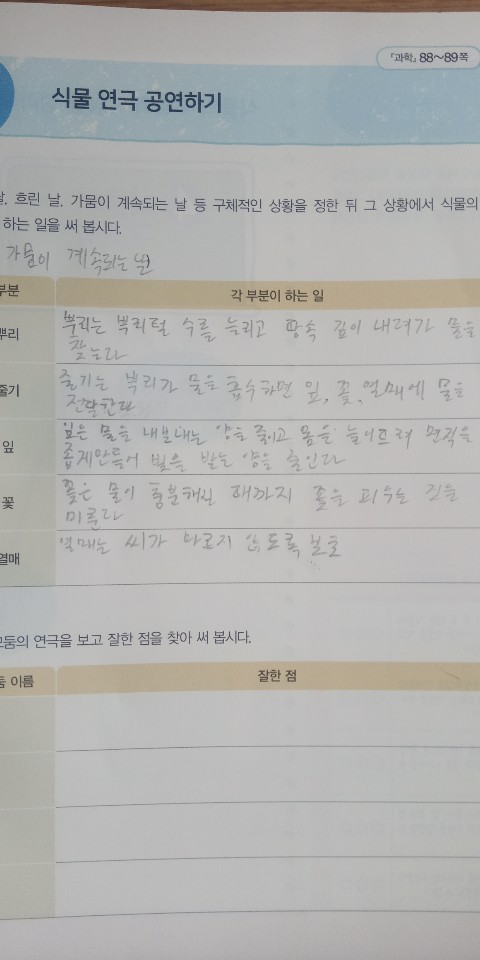 『과학』 88~89쪽
식물 연극 공연하기
날. 흐린 날. 가뭄이 계속되는 날 등 구체적인 상황을 정한 뒤 그 상황에서 식물의
하는 일을 써 봅시다.
가뭄이 계속되는 날
부분 각 부분이 하는 일
뿌리 뿌리는 뿌리털 수를 늘리고 땅속 깊이 내려가 물을
찾는다
줄기 줄기는 뿌리가 물을 흡수하면 잎, 꽃, 열매에 물을
전달한다
잎 잎은 물을 내보내는 양을 줄이고 몸을 늘어뜨려 면적을
좁게만들어 빛을 받는 양을 줄인다
꽃 꽃은 물이 충분해질 때까지 꽃을 피우는 것을
미룬다
열매 열매는 씨가 마르지 않도록 보호
모둠의 연극을 보고 잘한 점을 찾아 써 봅시다.
둠 이름 잘한 점